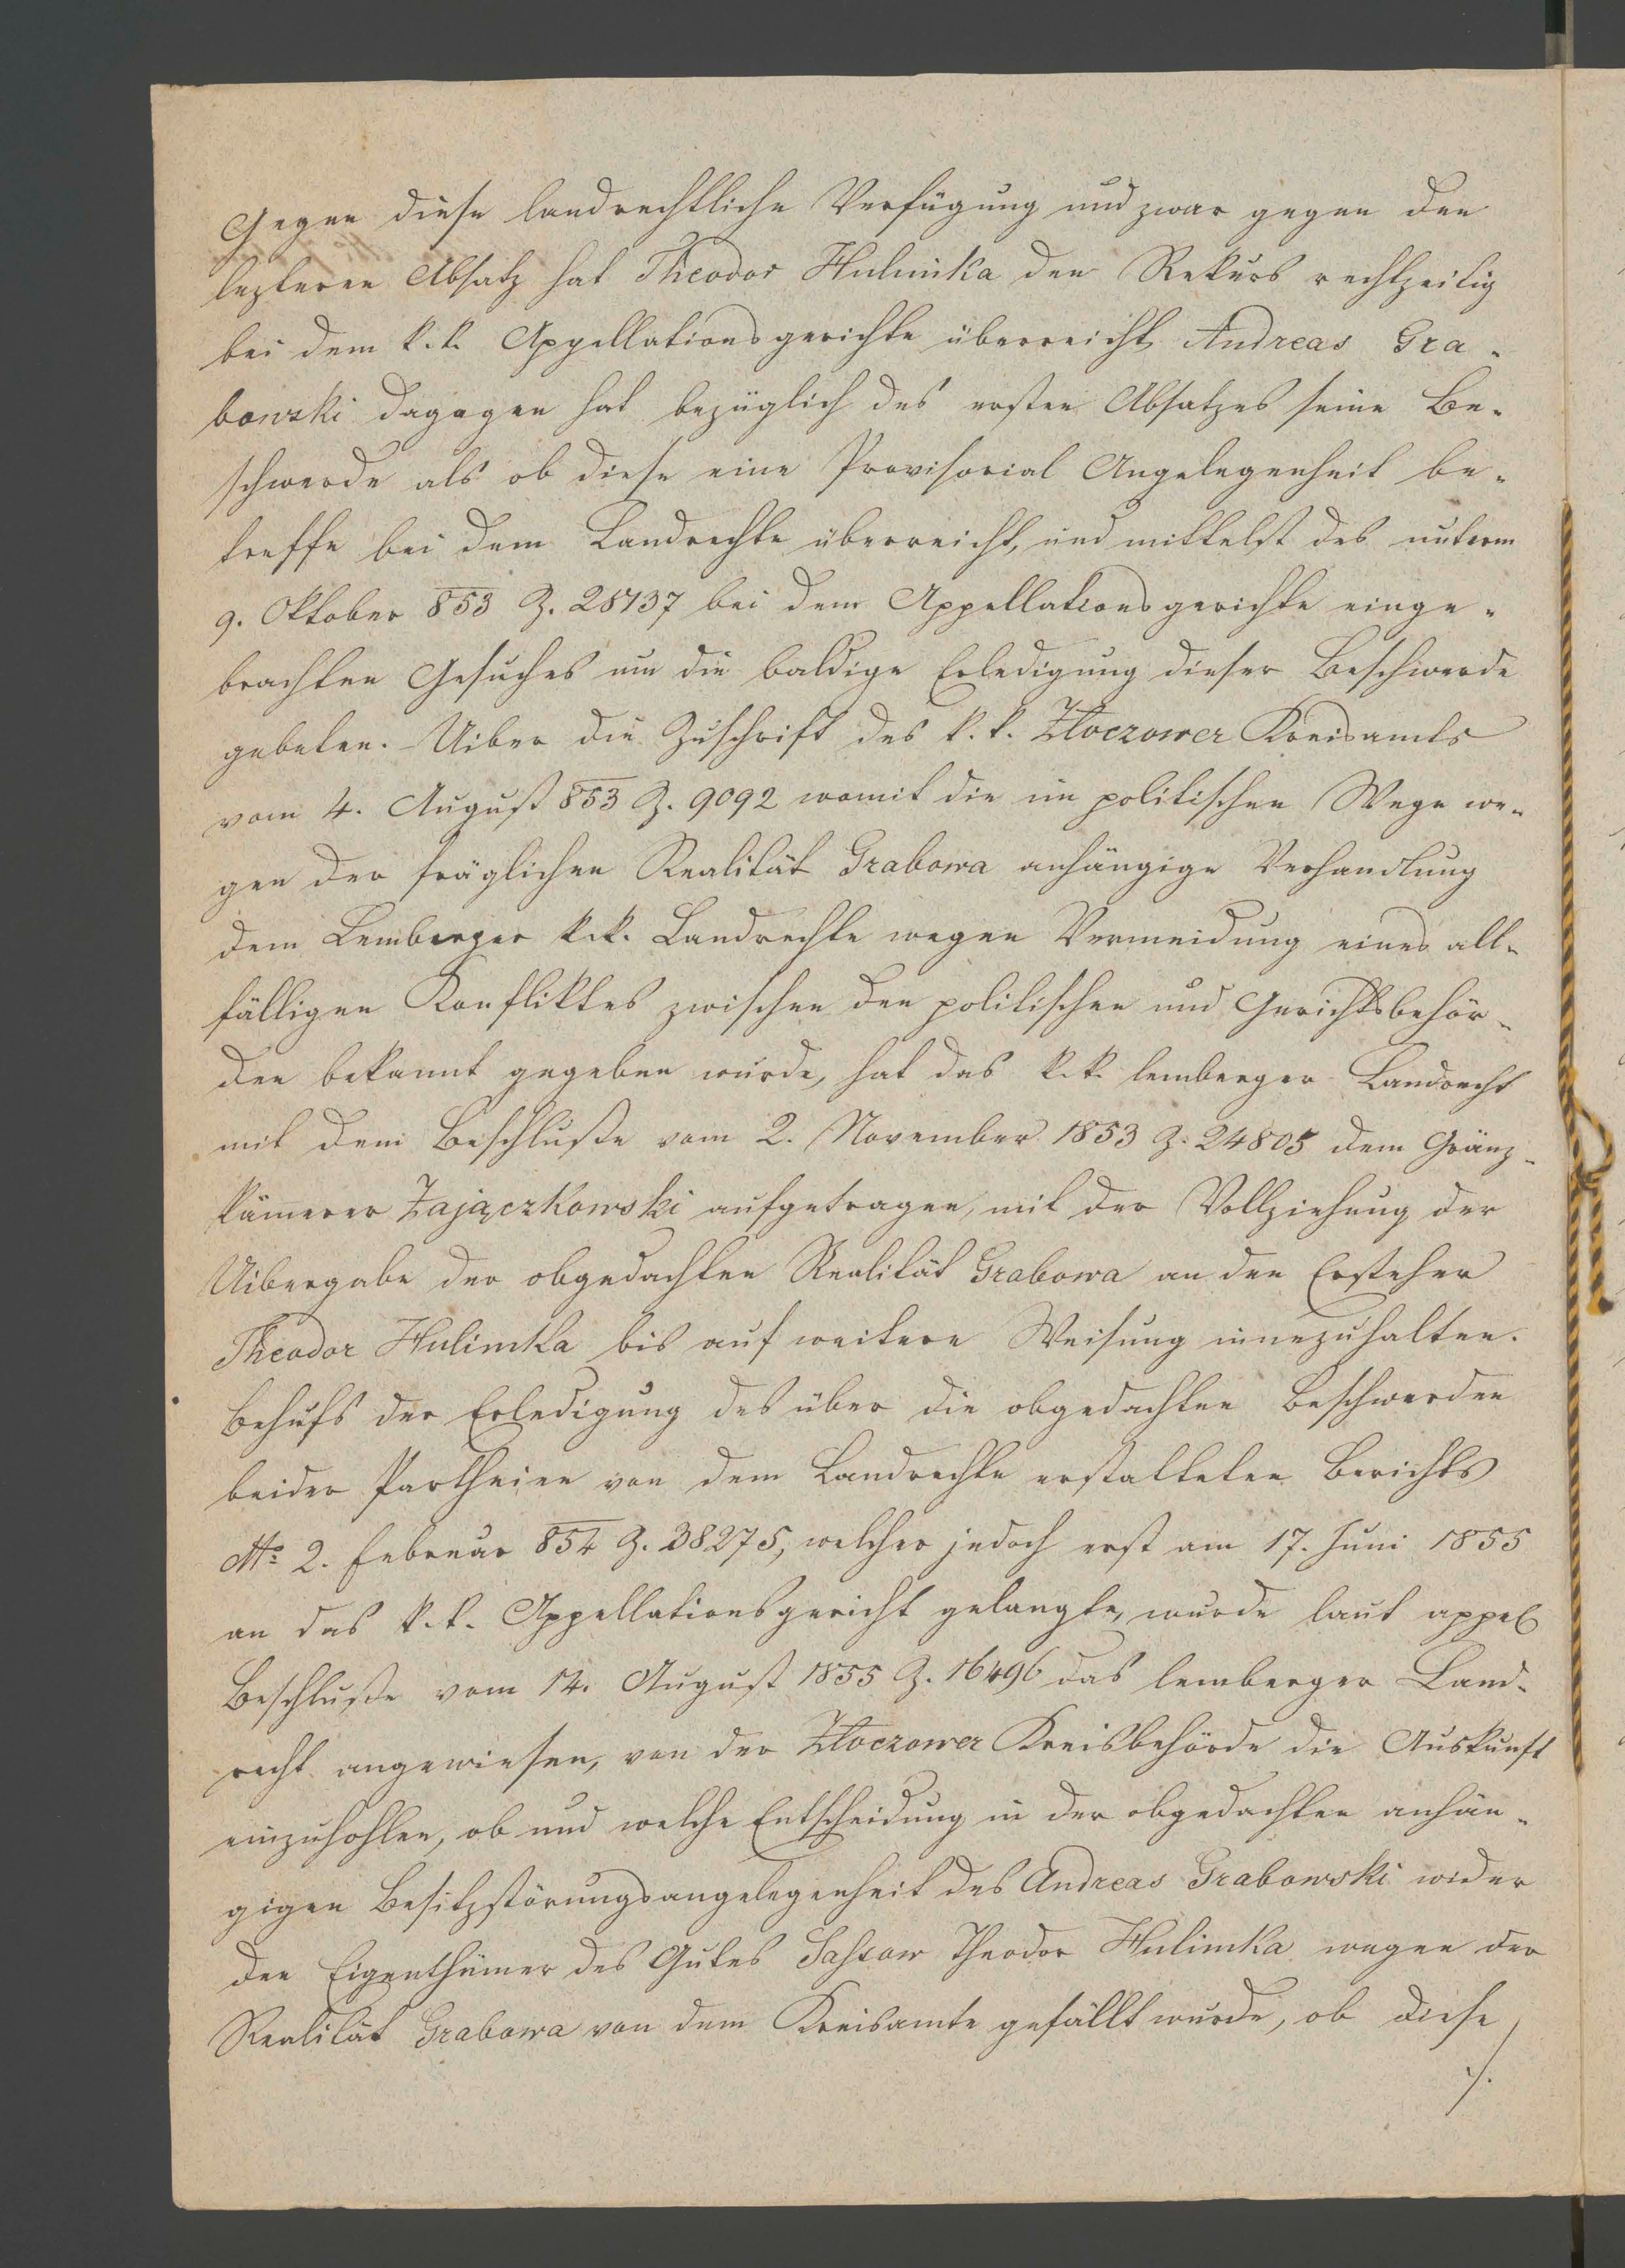 Gegen diese landrechtliche Verfügung und zwar gegen den
lezteren Absatz hat Theodor Hulimka den Rekurs rechtzeitig
bei dem k. k. Appellationsgerichte überreicht, Andreas Gra-
bowski dagegen hat bezüglich des ersten Absatzes seine Be-
schwerde als ob diese eine Provisorial Angelegenheit be-
treffe bei dem Landrechte überreicht, und mittelst des unterm
9. Oktober 853 Z. 28737 bei dem Appellationsgerichte einge-
brachten Gesuches um die baldige Erledigung dieser Beschwerde
gebeten. Uiber die Zuschrift des k. k. Złoczower Kreisamts
vom 4. August 853 Z. 9092 womit die im politischen Wege we-
gen der fräglichen Realität Grabowa anhängige Verhandlung
dem Lemberger k. k. Landrechte wegen Vermeidung eines all-
fälligen Konfliktes zwischen den politischen und Gerichtsbehör-
den bekannt gegeben wurde, hat das k. k. lemberger Landrecht
mit dem Beschluße vom 2. November 1853 Z. 24805 dem Gränz-
kämerer Zajączkowski aufgetragen, mit der Vollziehung der
Uibergabe der obgedachten Realität Grabowa an den Ersteher
Theodor Hulimka bis auf weitere Weisung innezuhalten.
Behufs der Erledigung des über die obgedachten Beschwerden
beider Partheien von dem Landrechte erstatteten Berichts
2. Februar 854 Z. 38275, welcher jedoch erst am 17. Juni 1855
an das k. k. Appellationsgericht gelangte, wurde laut appel
Beschluße vom 14. August 1855 Z. 16496 das lemberger Land-
recht angewiesen, von der Złoczower Kreisbehörde die Auskunft
einzuhohlen, ob und welche Entscheidung in der obgedachten anhän-
gigen Besitzstörungsangelegenheit des Andreas Grabowski wider
den Eigenthümer des Gutes Sassow Theodor Hulimka wegen der
Realität Grabowa von dem Kreisamte gefällt wurde, ob diese
./.